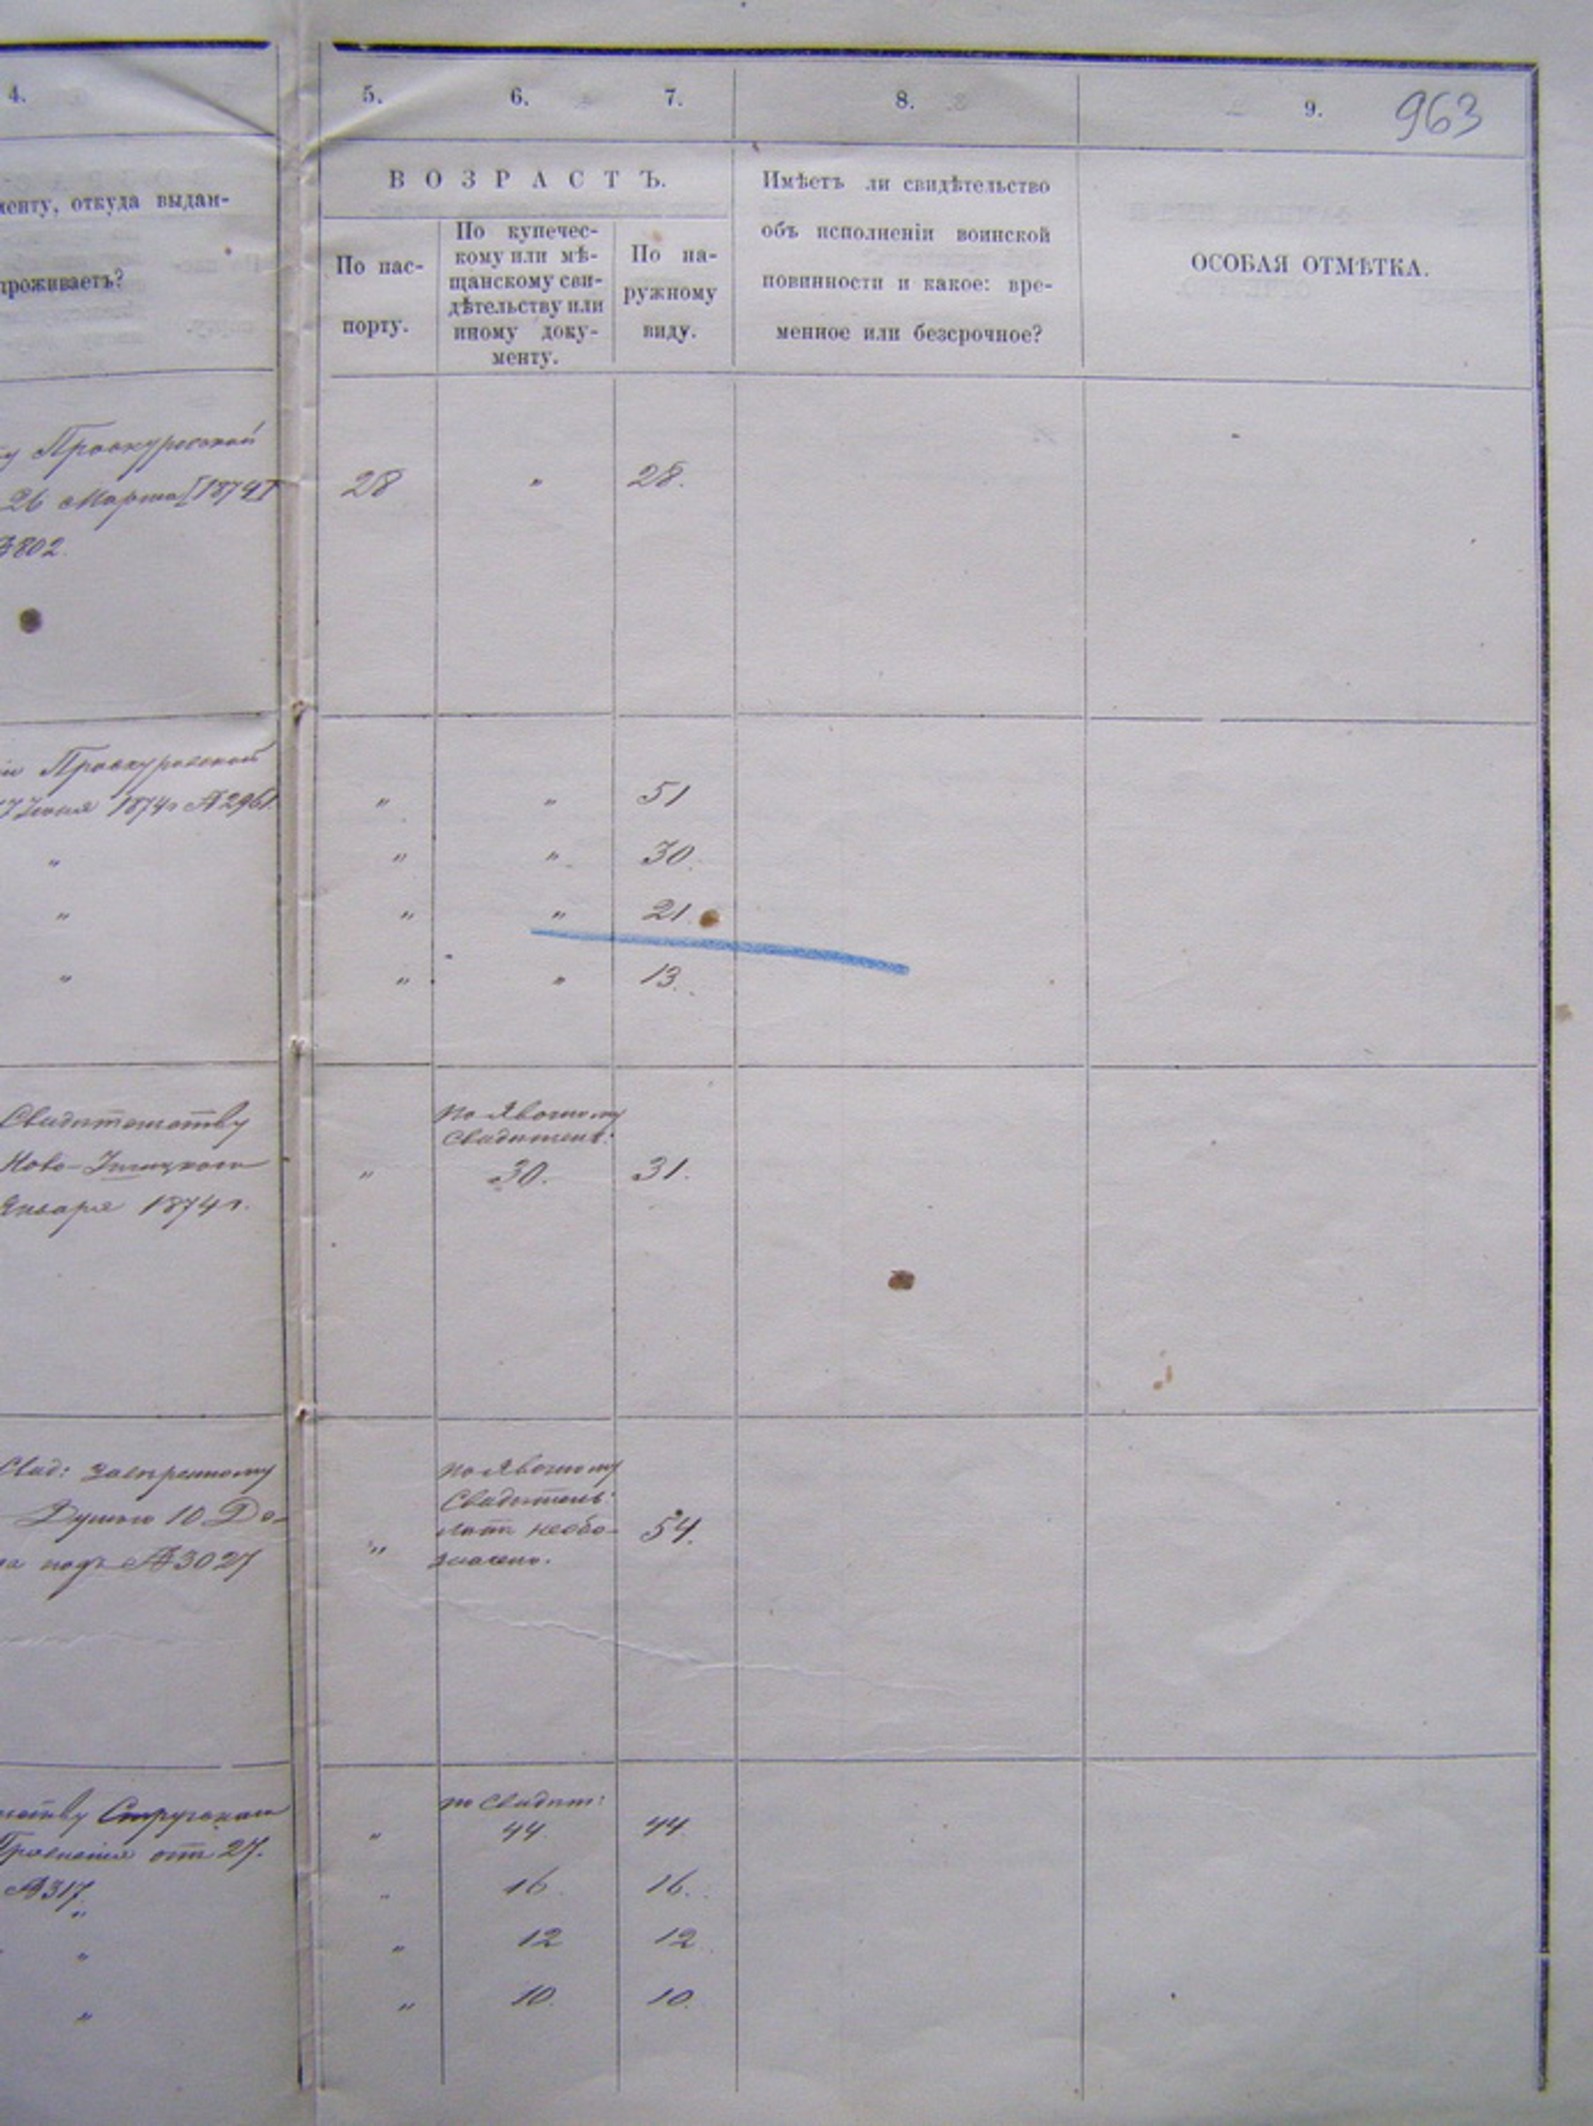 4. 5. 6. 7. 8. 9. 963
менту, откуда выдан-
проживаетъ?
ВОЗРАСТЪ.
По пас-
порту.
По купечес-
кому или мѣ-
щанскому сви-
дѣтельству или
иному доку-
менту.
По на-
ружному
виду.
Имѣетъ ли свидѣтельство
объ исполненіи воинской
повинности и какое: вре-
менное или безсрочное?
ОСОБАЯ ОТМѢТКА.
Проскуровской
26 Марта [1874] 28 " 28.
№802.
Проскуровской
17 Іюня 1874г №2961. " " 51
" " " 30.
" " " 21.
" " " 13.
Свидѣтельству
Ново-Ушицкаго
Января 1874г.
по Явочному
Свидѣтель:
" 30. 31.
Свид: заверенному
Думою 10 Де-
а подъ №3027
по Явочному
Свидѣтель:
лѣтъ необо-
значено.
" 54.
ству
отъ 27.
№317.
по Свидѣт:
" 44. 44.
" " 16. 16.
" " 12 12.
" " 10. 10.